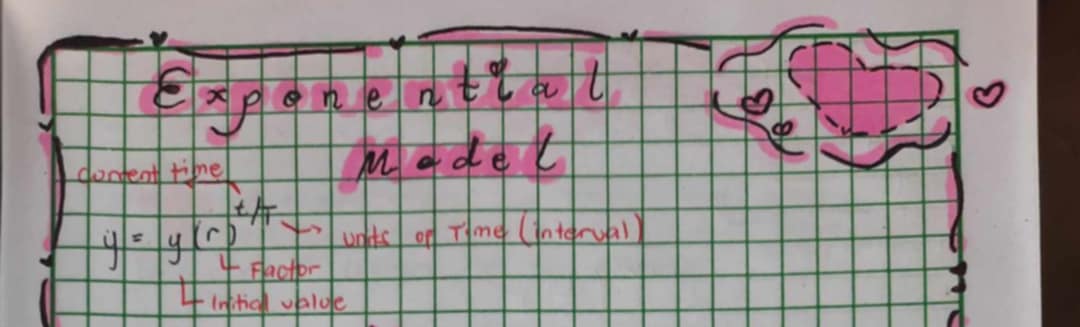 Exponential
Model
current time
y = y(r)^t/T
units of Time (interval)
Factor
Initial value